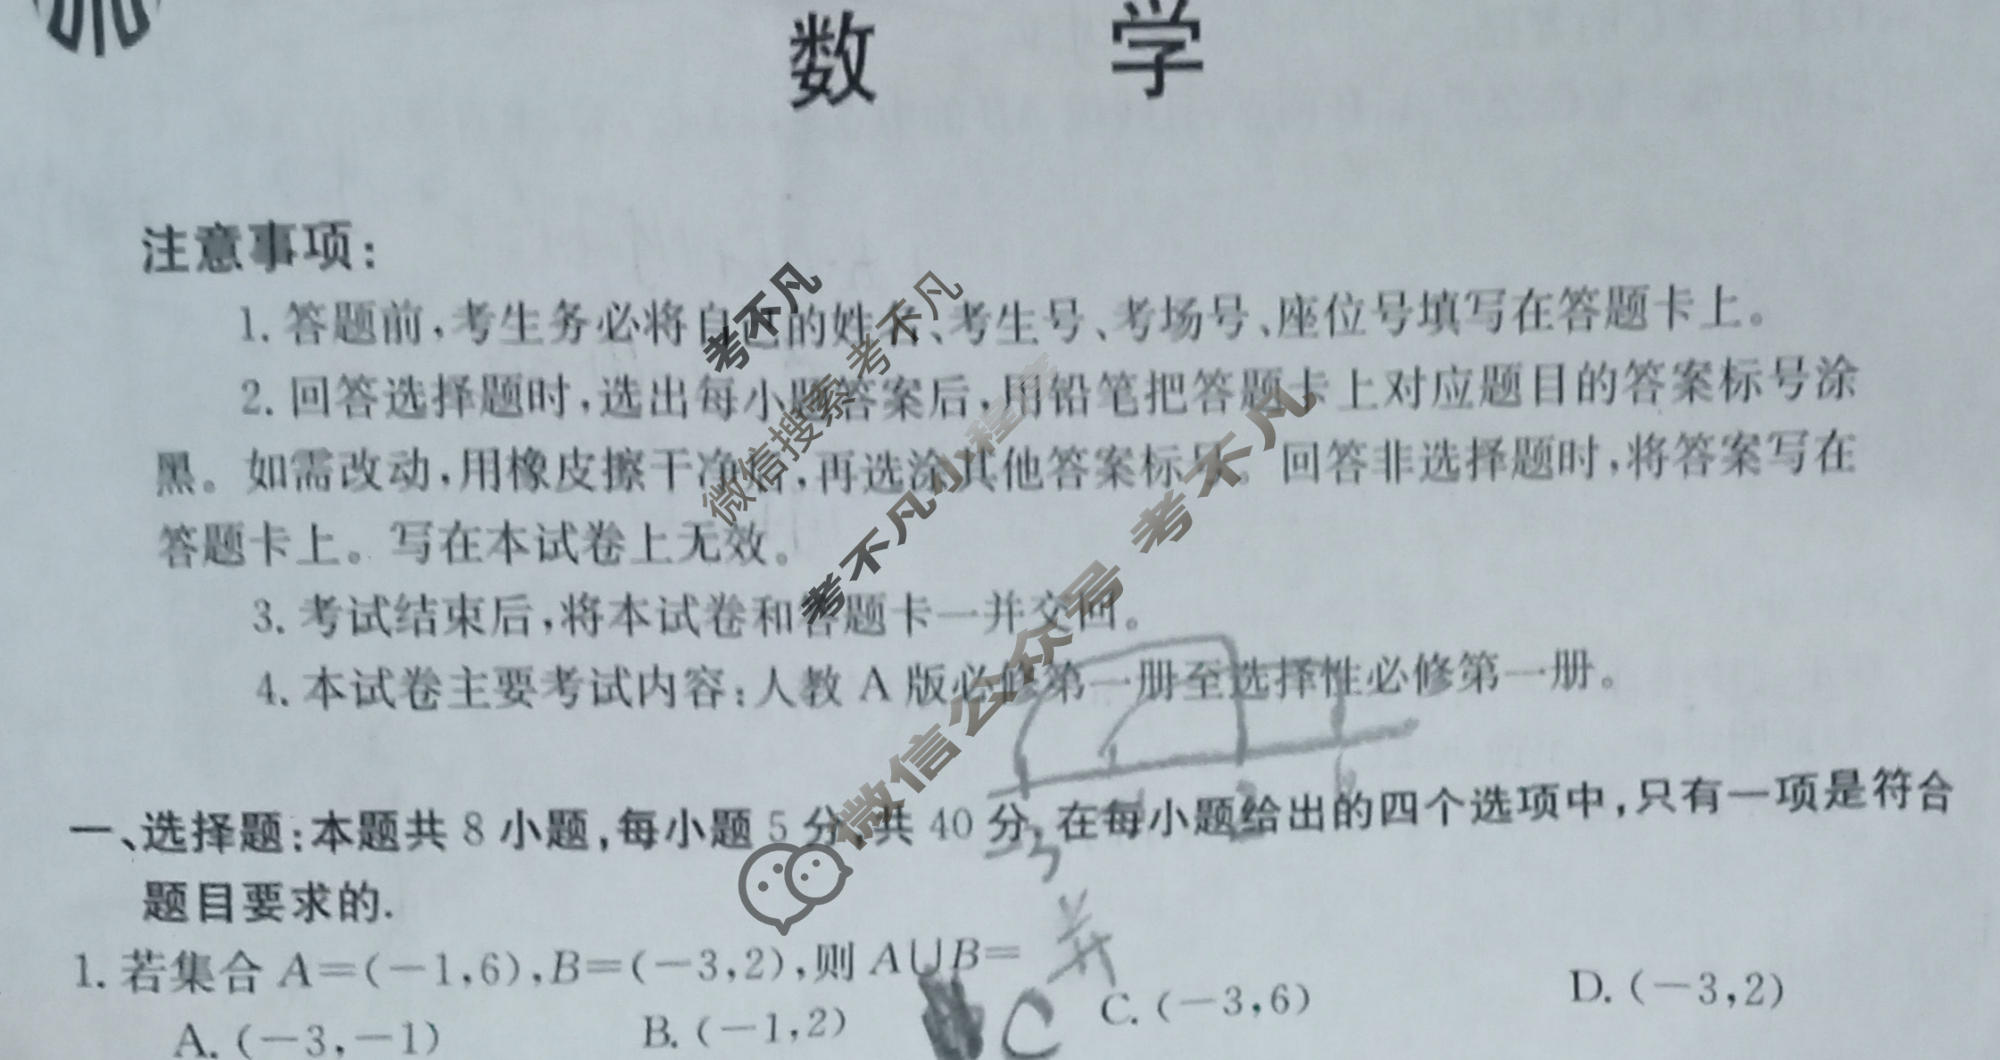 数 学
注意事项：
1. 答题前，考生务必将自己的姓名、考生号、考场号、座位号填写在答题卡上。
2. 回答选择题时，选出每小题答案后，用铅笔把答题卡上对应题目的答案标号涂
黑。如需改动，用橡皮擦干净后，再选涂其他答案标号。回答非选择题时，将答案写在
答题卡上。写在本试卷上无效。
3. 考试结束后，将本试卷和答题卡一并交回。
4. 本试卷主要考试内容：人教 A 版必修第一册至选择性必修第一册。
一、选择题：本题共 8 小题，每小题 5 分，共 40 分. 在每小题给出的四个选项中，只有一项是符合
题目要求的.
1. 若集合 A=(-1,6),B=(-3,2),则 A∪B=
A. (-3,-1) B. (-1,2) C. (-3,6) D. (-3,2)
C
并
-3 -1 2 6
考不凡
微信搜索 考不凡
考不凡小程序
微信公众号 考不凡